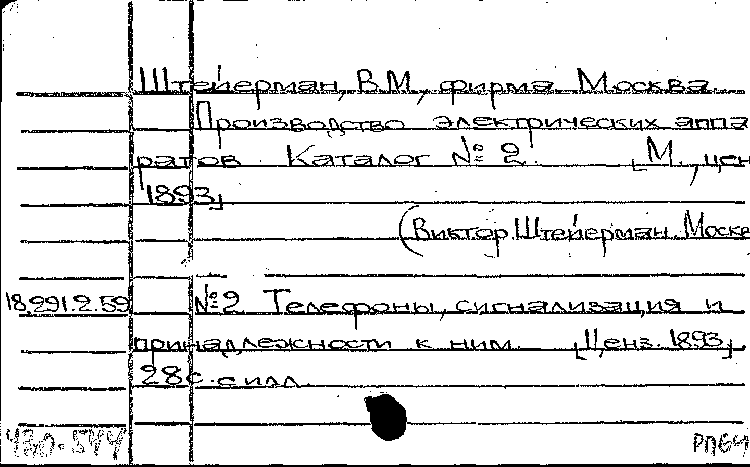 Штейерман, В.М., фирма. Москва.
Производство электрических аппа
ратов. Каталог № 2. [М., цен
1893]
(Виктор Штейерман. Москв
18.291.2.59 № 2 Телефоны, сигнализация и
принадлежности к ним. [Ценз. 1893]
28 с. с илл.
430-544 РПБ4